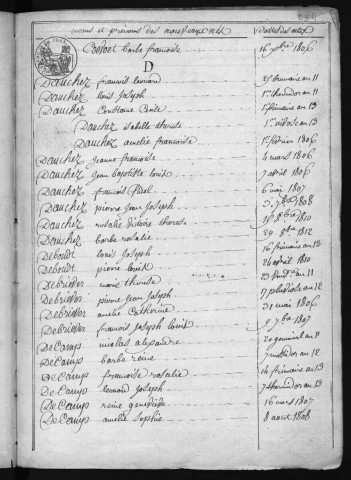 noms et prénoms des nouveaux nés
Dates des actes
Barbe françoise 16 9bre 1806
D
Dauchez françois léonard 25 brumaire an 11
Dauchez louis Joseph 1er thermidor an 11
Dauchez Constance 1er frimaire an 13
Dauchez isabelle therese 1er nivose an 13
Dauchez amelie françoise 1er fevrier 1806
Dauchez jeanne françoise 4 mars 1806
Dauchez jean baptiste louis 7 avril 1806
Dauchez françois fidel 6 mai 1807
Dauchez pierre jean Joseph 1808
Dauchez rosalie victoire therese 1810
Dauchez barbe rosalie 29 8bre 1812
Deboudt louis Joseph 16 frimaire an 13
Deboudt pierre louis 26 avril 1810
Debrisser marie therese an 11
Debrisser pierre jean Joseph 17 pluviose an 12
Debrisser amelie Catherine 31 mai 1806
Debrisser françois Joseph louis 9 7bre 1807
DeCamps nicolas alexandre 20 germinal an 11
DeCamps barbe reine an 12
DeCamps françoise rosalie 14 frimaire an 13
DeCamps leonard Joseph 7 thermidor an 13
DeCamps reine genevieve 16 mars 1807
DeCamps amelie Sophie 8 aout 1808